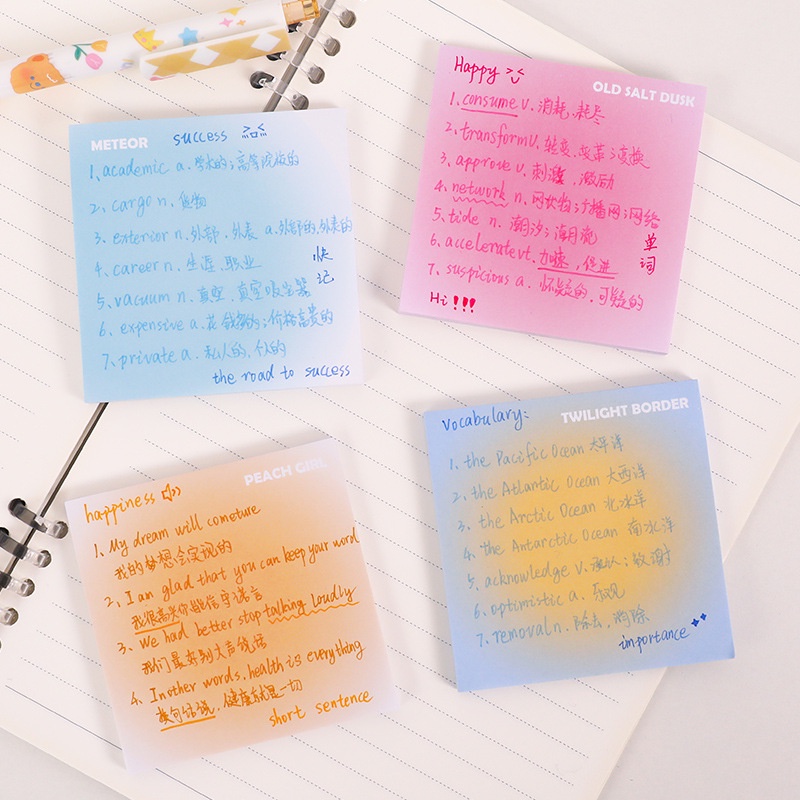 METEOR success
1、academic a. 学术的；高等院校的
2、cargo n. 货物
3、exterior n. 外部．外表 a.外部的,外表的
4、career n. 生涯．职业
5、vacuum n. 真空．真空吸尘器
6、expensive a. 花钱多的；价格高贵的
7、private a. 私人的．个人的
快记
the road to success
Happy
OLD SALT DUSK
1、consume v. 消耗．耗尽
2、transform v. 转变．改革；变换
3、approve v. 刺激．激励
4、network n. 网状物；广播网；网络
5、tide n. 潮汐；潮流
6、accelerate vt. 加速．促进
7、suspicious a. 怀疑的．可疑的
单词
Hi !!!
PEACH GIRL
happiness
1、My dream will cometure
我的梦想会实现的
2、I am glad that you can keep your word
我很高兴你能信守诺言
3、We had better stop talking loudly
我们最好别大声说话
4、In other words, health is everything
换句话说，健康就是一切
short sentence
Vocabulary:
TWILIGHT BORDER
1、the Pacific Ocean 太平洋
2、the Atlantic Ocean 大西洋
3、the Arctic Ocean 北冰洋
4、the Antarctic Ocean 南冰洋
5、acknowledge v. 承认；致谢
6、optimistic a. 乐观
7、removal n. 除去．消除
importance